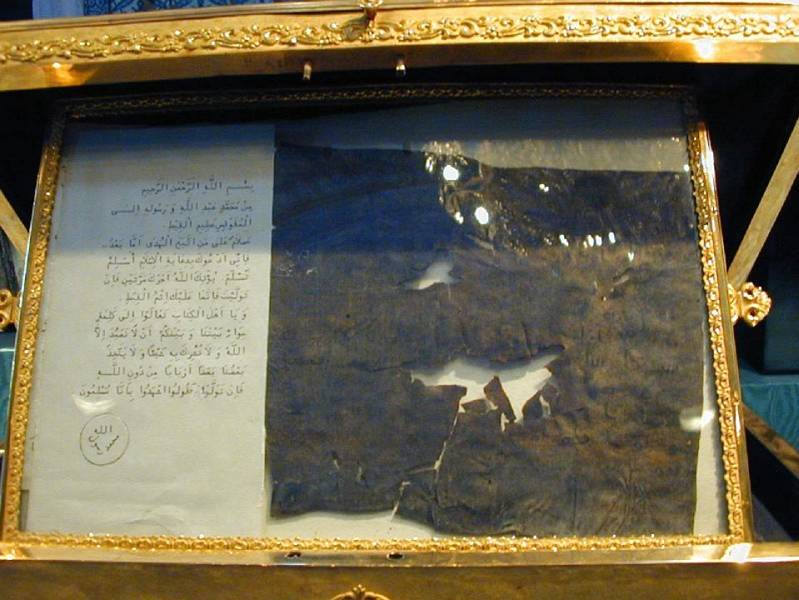 بِسْمِ اللَّهِ الرَّحْمٰنِ الرَّحِيمِ
مِنْ مُحَمَّدٍ عَبْدِ اللَّهِ وَرَسُولِهِ إِلَى
الْمُقَوْقِسِ عَظِيمِ الْقِبْطِ
سَلَامٌ عَلَى مَنِ اتَّبَعَ الْهُدَى أَمَّا بَعْدُ
فَإِنِّي أَدْعُوكَ بِدِعَايَةِ الْإِسْلَامِ أَسْلِمْ
تَسْلَمْ يُؤْتِكَ اللَّهُ أَجْرَكَ مَرَّتَيْنِ فَإِنْ
تَوَلَّيْتَ فَإِنَّمَا عَلَيْكَ إِثْمُ الْقِبْطِ .
وَ يَا أَهْلَ الْكِتَابِ تَعَالَوْا إِلَى كَلِمَةٍ
سَوَاءٍ بَيْنَنَا وَ بَيْنَكُمْ أَنْ لَا نَعْبُدَ إِلَّا
اللَّهَ وَ لَا نُشْرِكَ بِهِ شَيْئًا وَ لَا يَتَّخِذَ
بَعْضُنَا بَعْضًا أَرْبَابًا مِنْ دُونِ اللَّهِ
فَإِنْ تَوَلَّوْا فَقُولُوا اشْهَدُوا بِأَنَّا مُسْلِمُونَ
الله
رسول
محمد